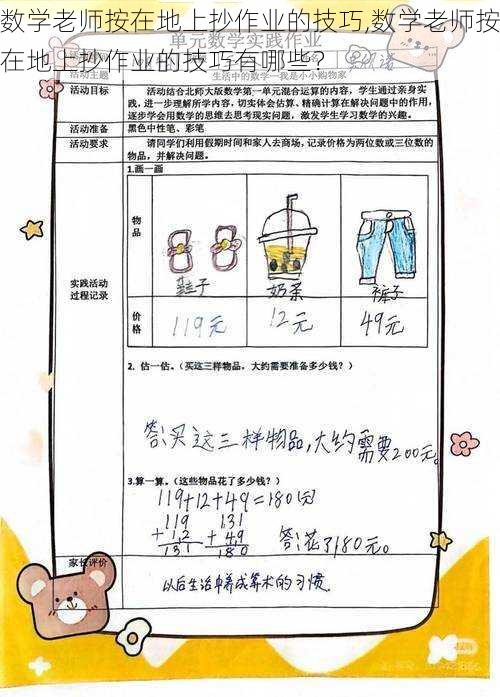 数学老师按在地上抄作业的技巧,数学老师按
在地上抄作业的技巧有哪些?
单元数学实践作业
活动主题
生活中的数学—我是小小购物家
活动目标
活动结合北师大版数学第一单元混合运算的内容，学生通过亲身实
践，进一步理解所学内容，切实体会估算、精确计算在解决问题中的作用，
逐步学会用数学的思维去思考现实问题，激发学生学习数学的兴趣。
活动准备
黑色中性笔、彩笔
活动要求
请同学们利用假期时间和家人去商场，记录价格为两位数或三位数的
物品，并解决问题。
实践活动
过程记录
1.画一画
物品
鞋子
奶茶
裤子
价格
119元
12元
49元
2. 估一估。（买这三样物品，大约需要准备多少钱？）
答:买这三样物品,大约需要200元。
3.算一算。（这些物品花了多少钱？）
119+12+49=180(元)
119 131
+ 12 + 49
131 180
答:花了180元。
家长评价
以后生活中养成算术的习惯.